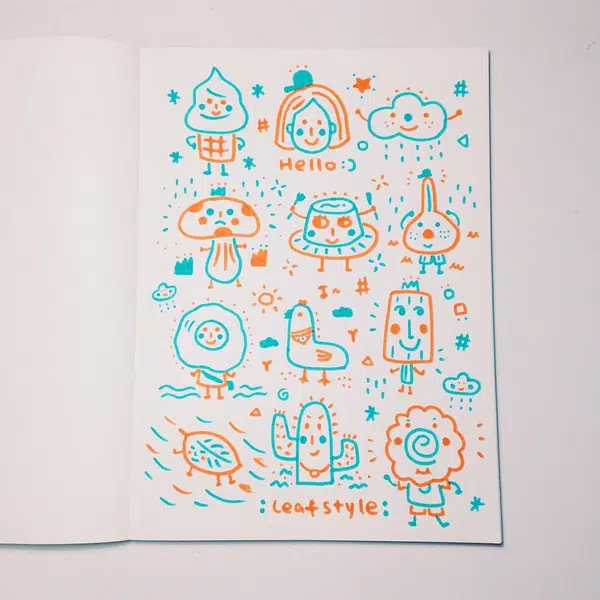 Hello :)
I~
:Leafstyle: